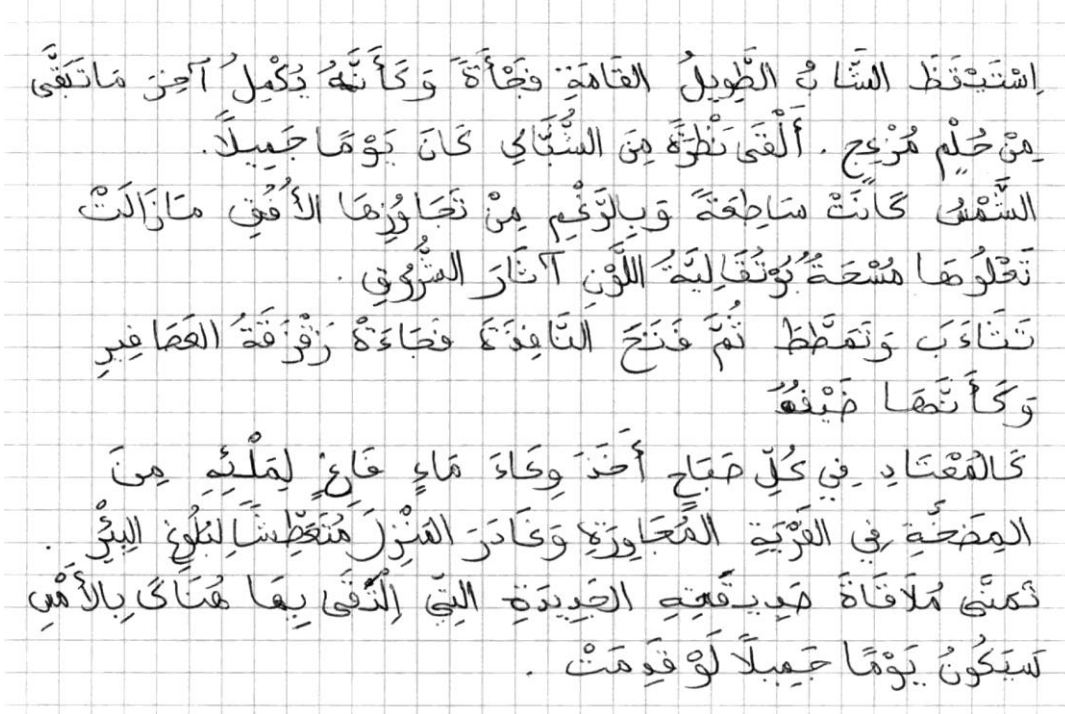 اِسْتَيْقَظَ الشَّابُ الطَّوِيلُ القَامَةِ فَجْأَةً وَكَأَنَّهُ يُكْمِلُ آخِرَ مَا تَبَقَّى
مِنْ حُلْمٍ مُزْعِجٍ. أَلْقَى نَظْرَةً مِنَ الشُّبَّاكِ كَانَ يَوْمًا جَمِيلًا.
الشَّمْسُ كَانَتْ سَاطِعَةً وَبِالرَّغْمِ مِنْ تَجَاوُزِهَا الأُفُقِ مَازَالَتْ
تَعْلُوهَا مُسْحَةٌ بُرْتُقَالِيَّةُ اللَّوْنِ آثَارَ الشُّرُوقِ.
تَثَاءَبَ وَتَمَطَّطَ ثُمَّ فَتَحَ النَّافِذَةَ فَجَاءَةْ زَقْزَقَةُ العَصَافِيرِ
وَكَأَنَّهَا ضَيْفُهُ
كَالمُعْتَادِ فِي كُلِّ صَبَاحٍ أَخَذَ وِعَاءَ مَاءٍ فَاغٍ لِمَلْئِهِ مِنَ
المِضَخَّةِ فِي القَرْيَةِ المُجَاوِرَةِ وَغَادَرَ المَنْزِلَ مُتَعَطِّشًا لِبُلُوغِ البِئْرِ.
تَمَنَّى مُلَاقَاةَ صَدِيقَتِهِ الجَدِيدَةِ الَّتِي اِلْتَقَى بِهَا هُنَاكَ بِالأَمْسِ
سَيَكُونُ يَوْمًا جَمِيلًا لَوْ قَدِمَتْ.